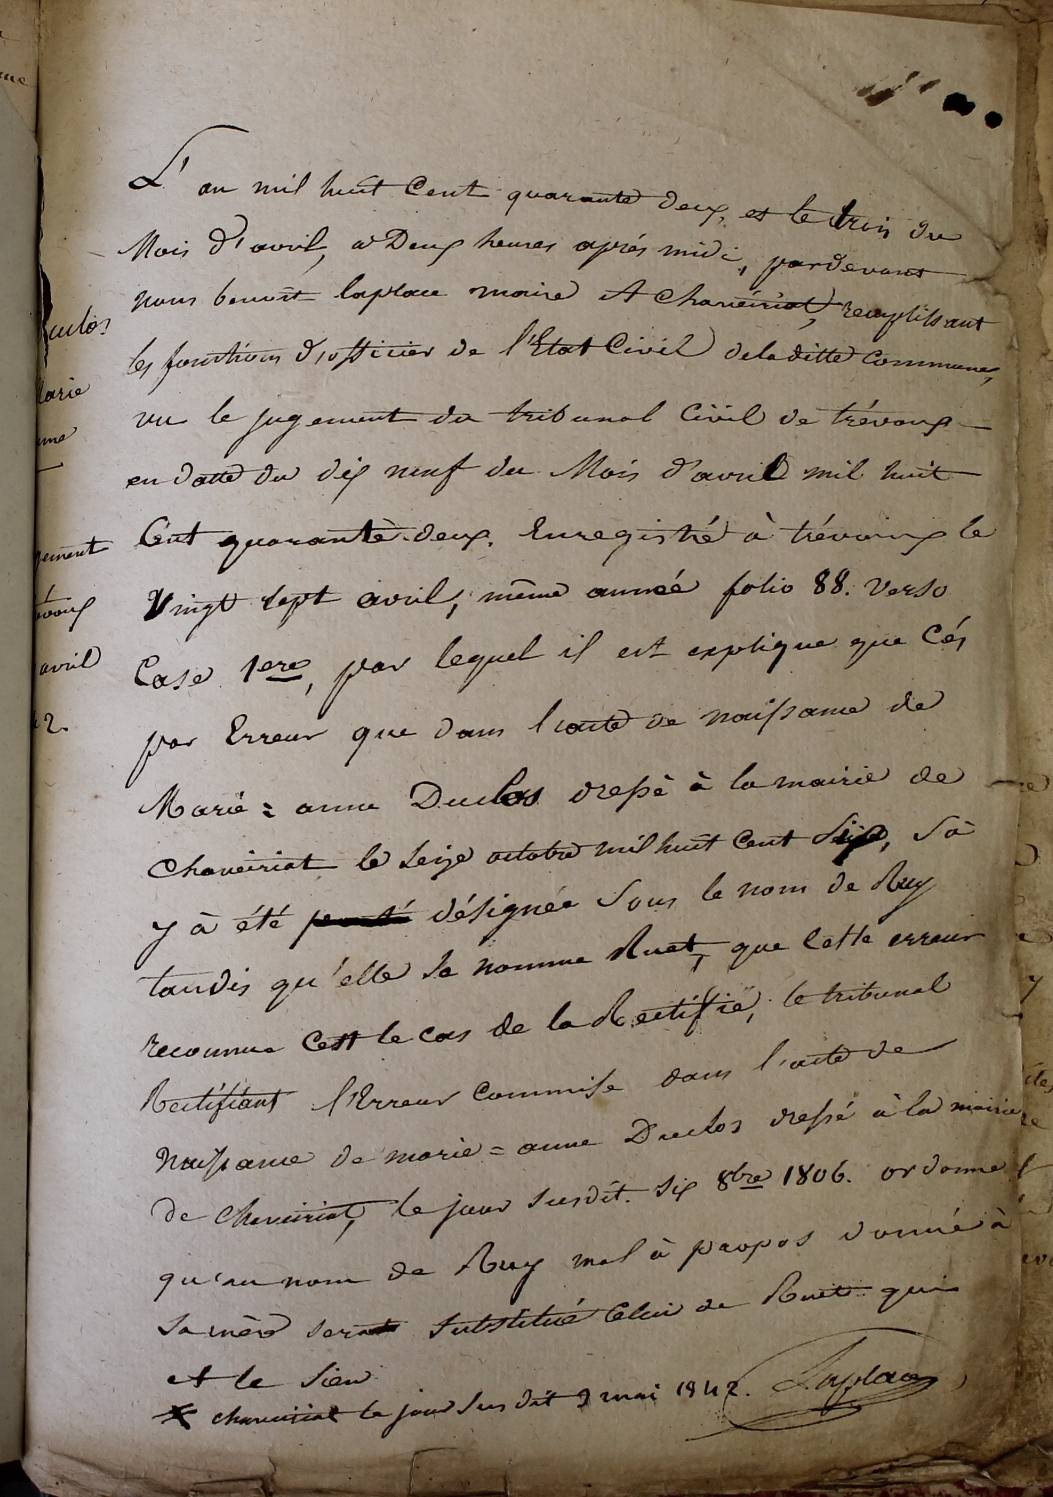 L'an mil huit Cent quarante deux, et le trois du
Mois d'avril, a Deux heures après midi, pardevant
nous benoit laplace maire A Chaveiriat, remplissant
les fonctions d'officier de l'Etat Civil de la ditte Commune,
vu le jugement du tribunal Civil de trévoux
en datte du dix neuf du Mois d'avril mil huit
Cent quarante-deux. Enregistré à trévoux le
Vingt sept avril, même année folio 88. verso
Case 1ere, par lequel il est explique que Cés
par Erreur que dans l'acte de naissance de
Marie = anne Duclos dressé à la mairie de
chaveiriat le seize octobre mil huit Cent Six, Sa
y à été désignée Sous le nom de Ruy
tandis qu'elle se nomme Ruet, que Cette erreur
reconnue Cest le cas de la Rectifié, le tribunal
Rectifiant l'Erreur Commise dans l'acte de
Naissance de marie = anne Duclos dressé à la mairie
de Chaveiriat, le jour susdit. Six 8bre 1806. ordonne
qu'au nom de Ruy mal à propos donné à
Sa mère serat substitué Celui de Ruet qui
et le Sien
chaveiriat le jour Sus dit 9 mai 1842. Laplace
Duclos
Marie
avril